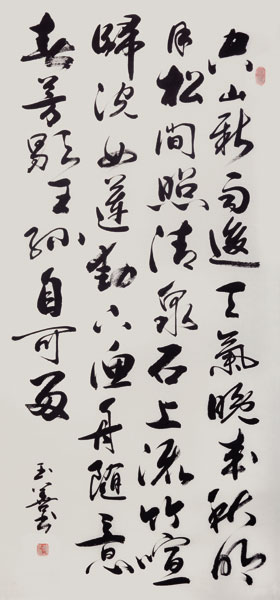 空山新雨後天氣晚来秋明
月松間照清泉石上流竹喧
歸浣女蓮動下漁舟隨意
春芳歇王孫自可留
玉善书